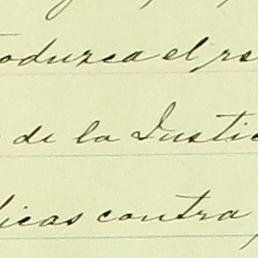 oduzca el re
de la Justic
licas contra